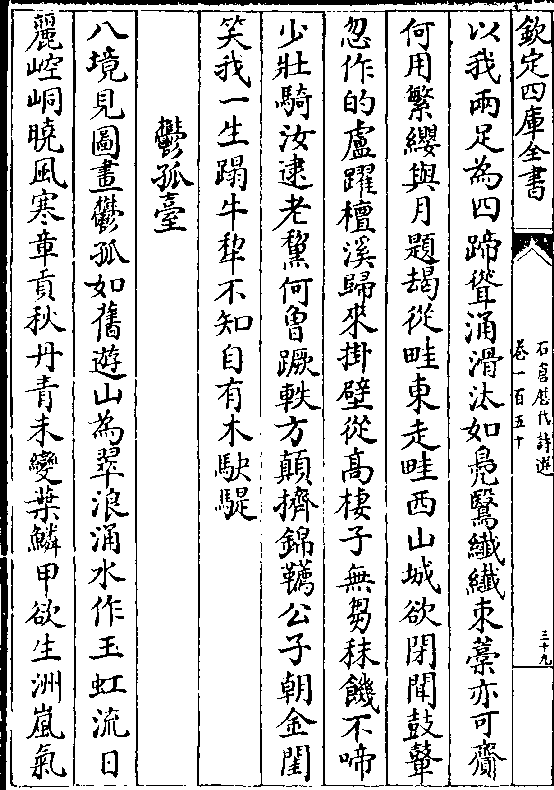 欽定四庫全書
石倉歷代詩選
卷一百五十
三十九
以我兩足為四蹄聳涌滑汰如鳧鷖纖纖束藁亦可齎
何用繁纓與月題朅從畦東走畦西山城欲閉聞鼓鼙
忽作的盧躍檀溪歸來掛壁從高棲子無芻秣饑不啼
少壯騎汝逮老黧何曾蹶軼方顛擠錦韉公子朝金閨
笑我一生蹋牛犂不知自有木駃騠
鬱孤臺
八境見圖畫鬱孤如舊遊山為翠浪涌水作玉虹流日
麗崆峒曉風寒章貢秋丹青未變葉鱗甲欲生洲嵐氣